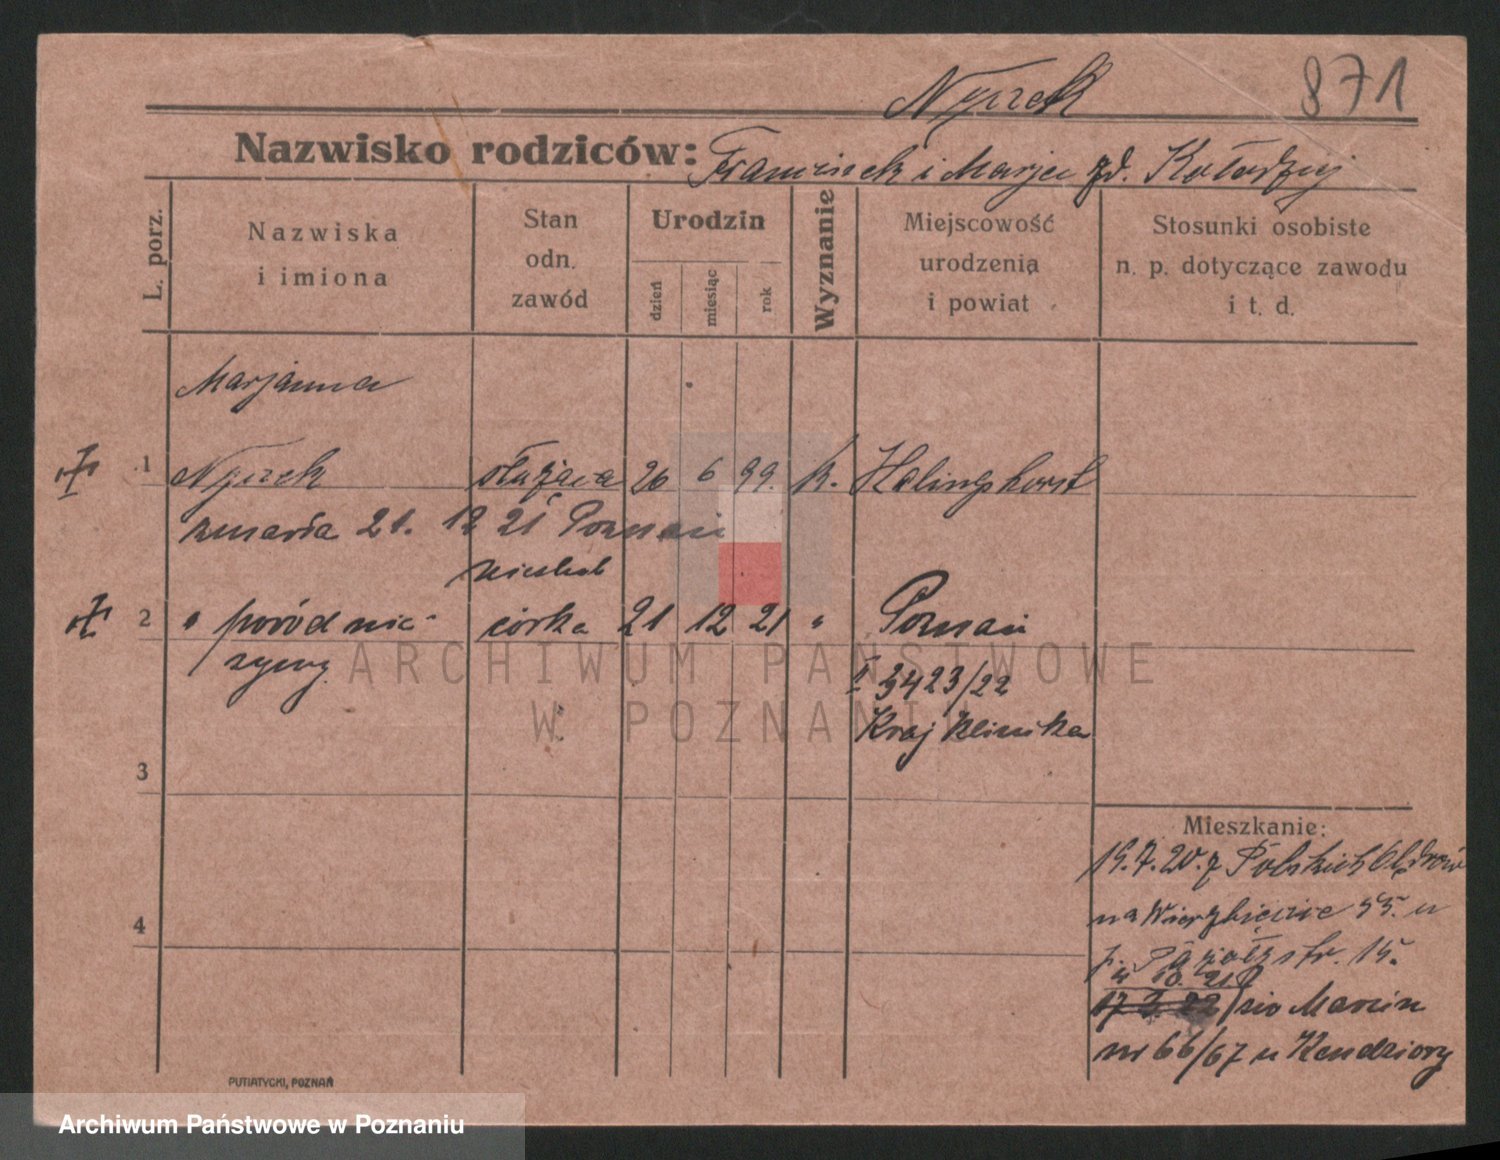 Nyrek
871
Nazwisko rodziców: Franciszek i Marja zd. Kołodziej
L. porz.
Nazwiska
i imiona
Stan
odn.
zawód
Urodzin
dzień
miesiąc
rok
Wyznanie
Miejscowość
urodzenia
i powiat
Stosunki osobiste
n. p. dotyczące zawodu
i t. d.
Marjanna
1 Nyrek służąca 26 6 99. k.
zmarła 21. 12 21 Poznań
2 " poród nie- córka 21 12 21 " Poznań
żywy
I 3423/22
Kraj Klinika
3
4
Mieszkanie:
15.7.20. z Polskich
na Wierzbięcice 55. u
str. 15.
10. 21
17 2. 22 Marcin
nr 66/67 u Kendziory
PUTIATYCKI, POZNAŃ
ARCHIWUM PAŃSTWOWE
W POZNANIU
Archiwum Państwowe w Poznaniu